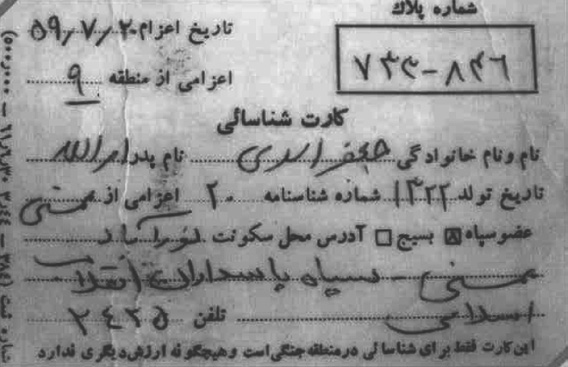 شماره پلاک
۷۳۶-۸۴۶
تاریخ اعزام ۵۹/۷/۲۰
اعزامی از منطقه ۹
کارت شناسائی
نام و نام خانوادگی جعفر اسدی نام پدر امرالله
تاریخ تولد ۱۳۲۲ شماره شناسنامه ۲۰ اعزامی از ممسنی
عضو سپاه ☒ بسیج ☐ آدرس محل سکونت نورآباد
ممسنی - سپاه پاسداران انقلاب
اسلامی تلفن ۲۴۲۵
این کارت فقط برای شناسائی در منطقه جنگی است و هیچگونه ارزش دیگری ندارد